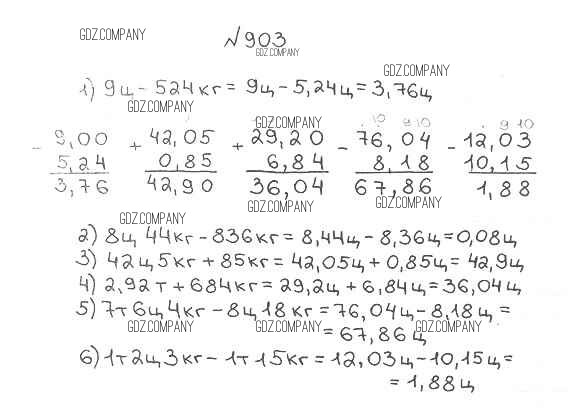 GDZ.COMPANY
№903
GDZ.COMPANY
GDZ.COMPANY
1) 9ц - 524кг = 9ц - 5,24ц = 3,76ц
GDZ.COMPANY
GDZ.COMPANY
10 9 10 9 10
- 9,00 + 42,05 + 29,20 - 76,04 - 12,03
5,24 0,85 6,84 8,18 10,15
3,76 42,90 36,04 67,86 1,88
GDZ.COMPANY GDZ.COMPANY GDZ.COMPANY
2) 8ц 44кг - 836кг = 8,44ц - 8,36ц = 0,08ц
3) 42ц 5кг + 85кг = 42,05ц + 0,85ц = 42,9ц
4) 2,92т + 684кг = 29,2ц + 6,84ц = 36,04ц
5) 7т 6ц 4кг - 8ц 18кг = 76,04ц - 8,18ц =
= 67,86ц
GDZ.COMPANY GDZ.COMPANY GDZ.COMPANY
6) 1т 2ц 3кг - 1т 15кг = 12,03ц - 10,15ц =
= 1,88ц